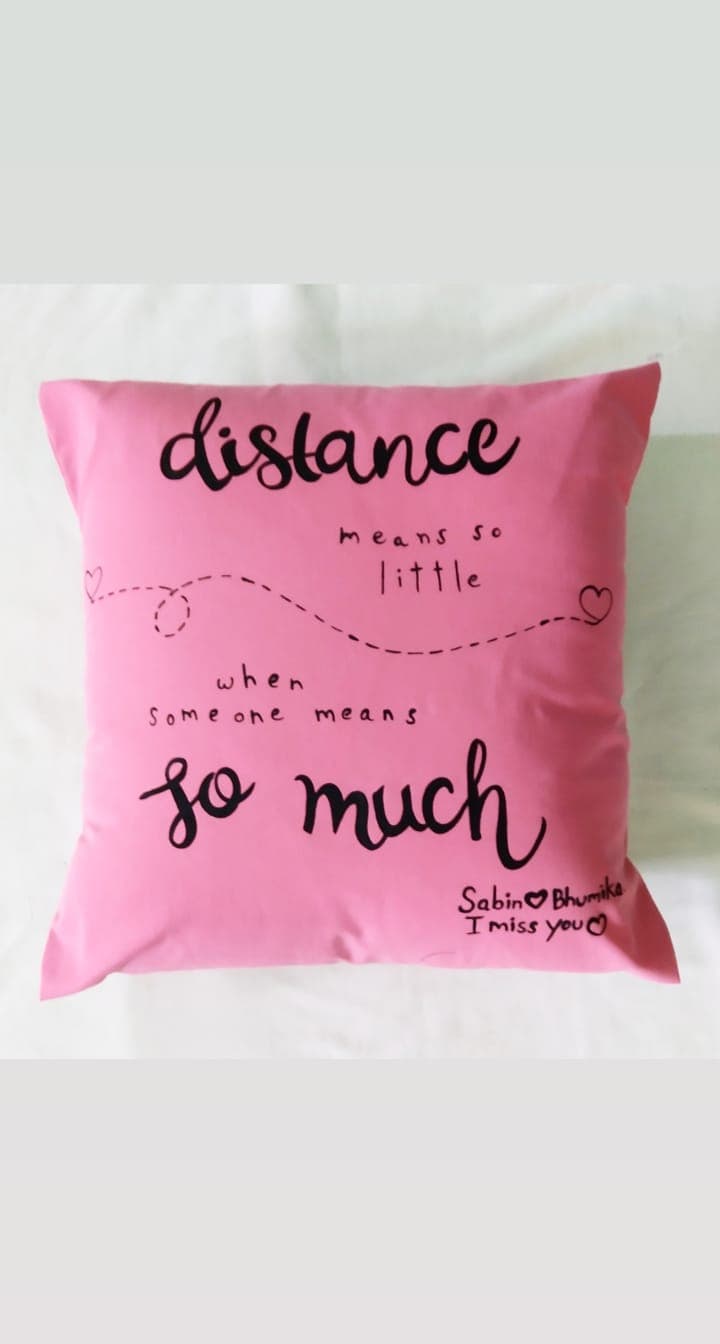 distance
means so
little
when
someone means
so much
Sabin♥Bhumika
I miss you♡